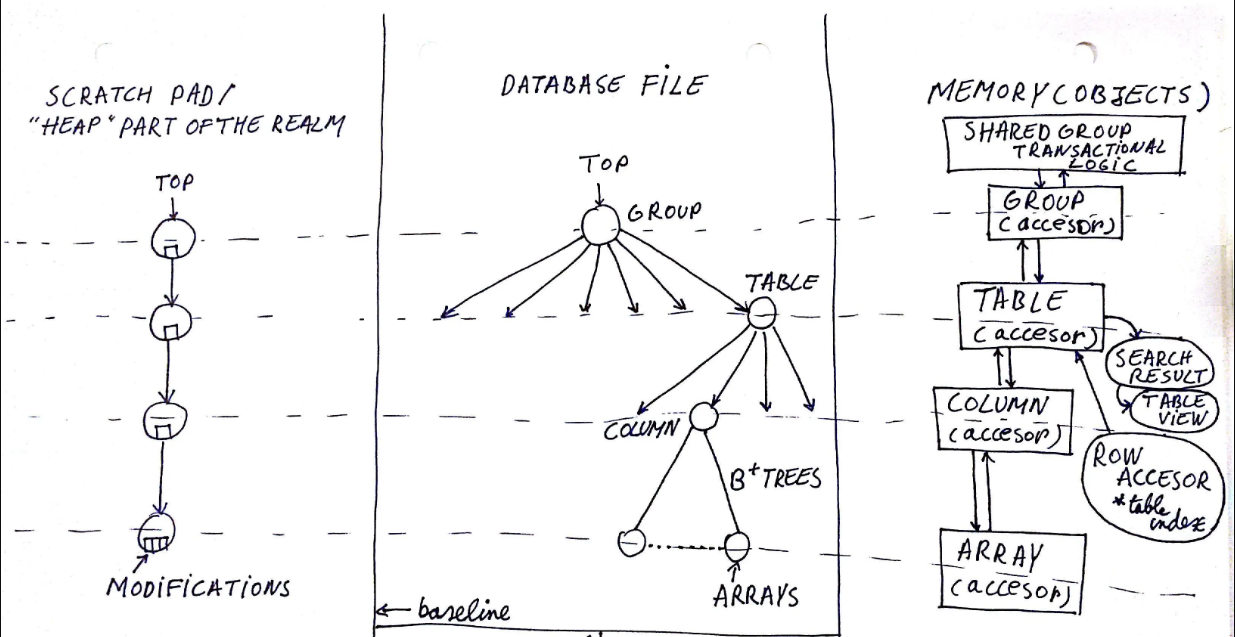 SCRATCH PAD/
"HEAP" PART OF THE REALM
TOP
MODIFICATIONS
DATABASE FILE
TOP
GROUP
TABLE
COLUMN
B+ TREES
ARRAYS
← baseline
MEMORY (OBJECTS)
SHARED GROUP
TRANSACTIONAL
LOGIC
GROUP
(accesor)
TABLE
(accesor)
SEARCH
RESULT
TABLE
VIEW
COLUMN
(accesor)
ROW
ACCESOR
*table
index
ARRAY
(accesor)